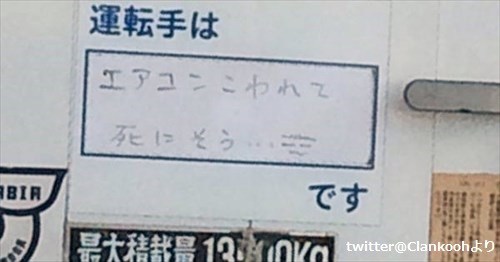 運転手は
エアコンこわれて
死にそう…
です
最大積載量 13
00Kg
ABIA
twitter@Clankoohより